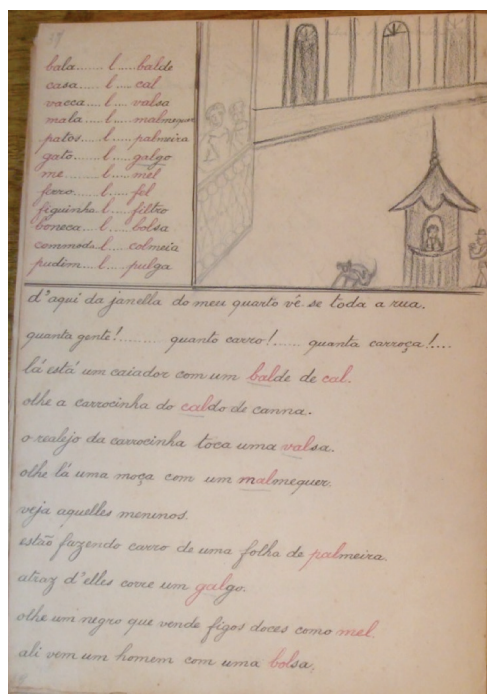 bala....... l.... balde
casa....... l.... cal
vacca.... l.... valsa
mala..... l.... malmequer
patos.... l.... palmeira
gato..... l.... galgo
me...... l..... mel
ferro..... l..... fel
figuinha. l..... filtro
boneca.. l.... bolsa
commoda l.... colmeia
pudim.... l.... pulga
d'aqui da janella do meu quarto vê-se toda a rua.
quanta gente!......... quanto carro!...... quanta carroça!....
lá está um caiador com um balde de cal.
olhe a carrocinha do caldo de canna.
o realejo da carrocinha toca uma valsa.
olhe lá uma moça com um malmequer.
veja aquelles meninos.
estão fazendo carro de uma folha de palmeira.
atraz d'elles corre um galgo.
olhe um negro que vende figos doces como mel.
ali vem um homem com uma bolsa.